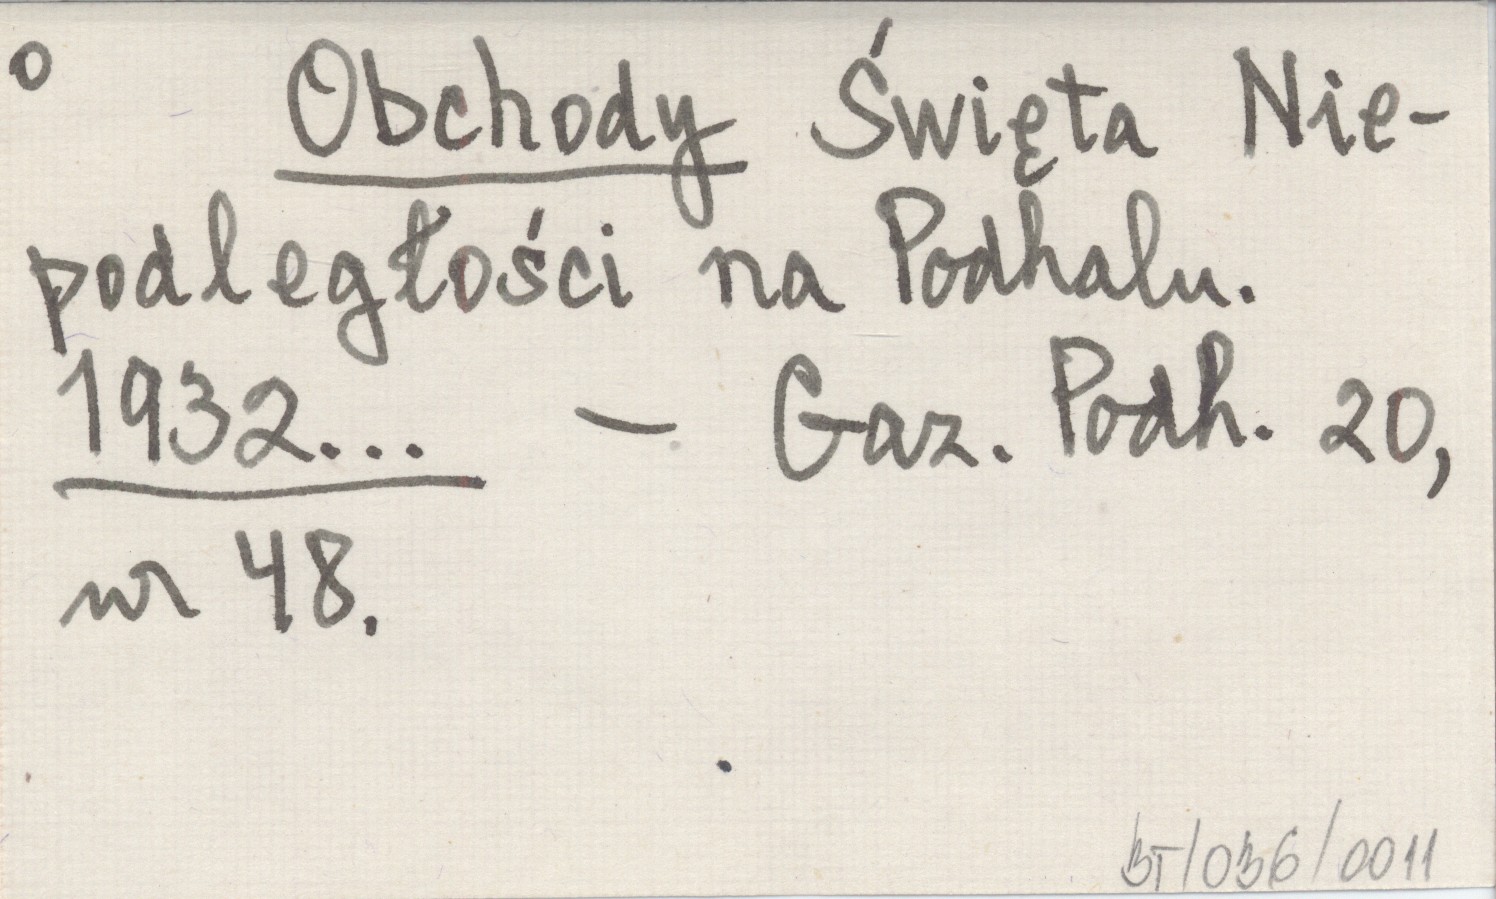 o Obchody Święta Nie-
podległości na Podhalu.
1932... – Gaz. Podh. 20,
nr 48.
BT/036/0011